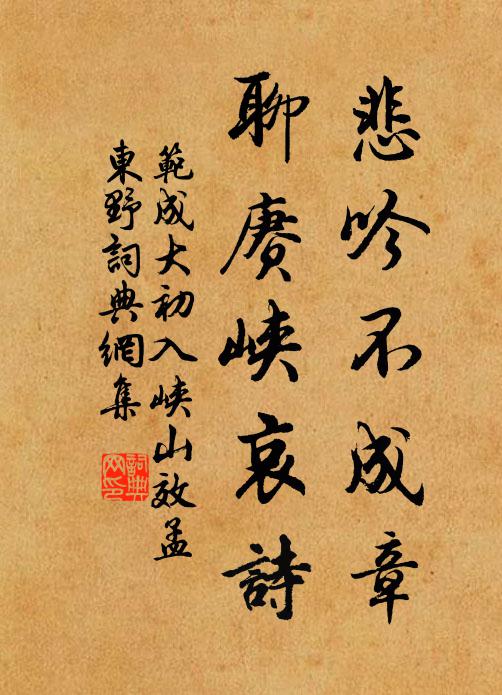 悲吟不成章
聊賡峽哀詩
範成大初入峽山效孟
東野詞典網集
詞典网印